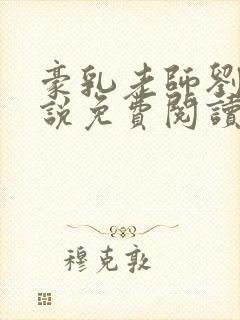 豪乳老師劉
說免費閱讀
穆克敦